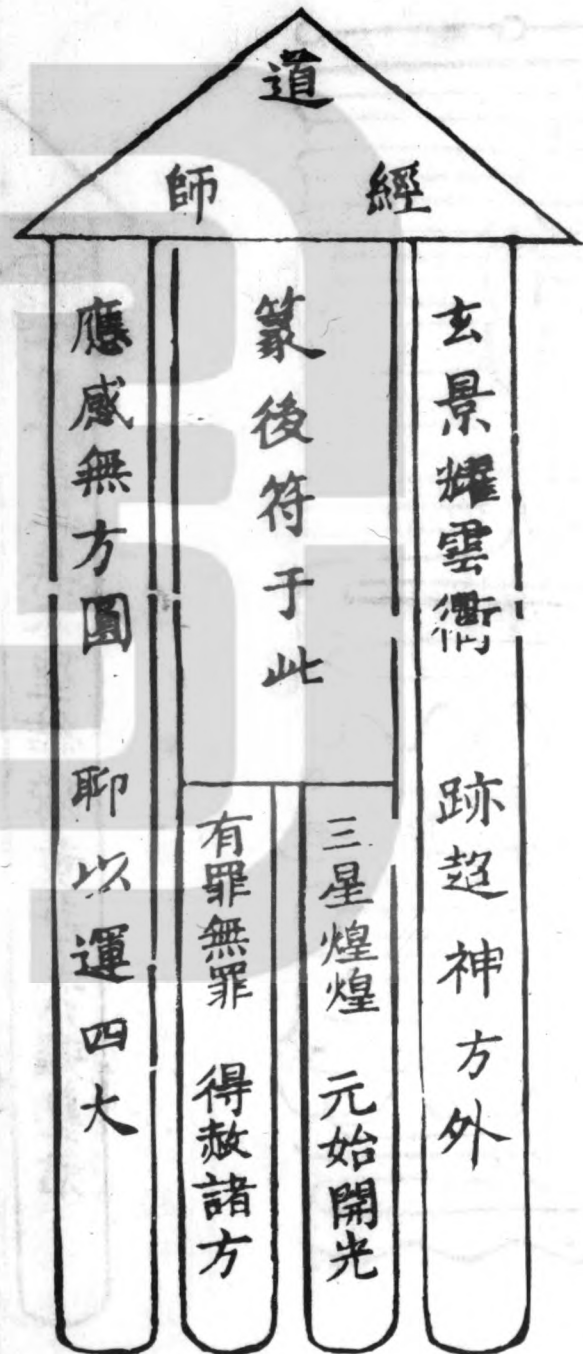 道
經 師
玄景耀雲衢 跡超神方外
篆後符于此
三星煌煌 元始開光
有罪無罪 得赦諸方
應感無方圓 聊以運四大